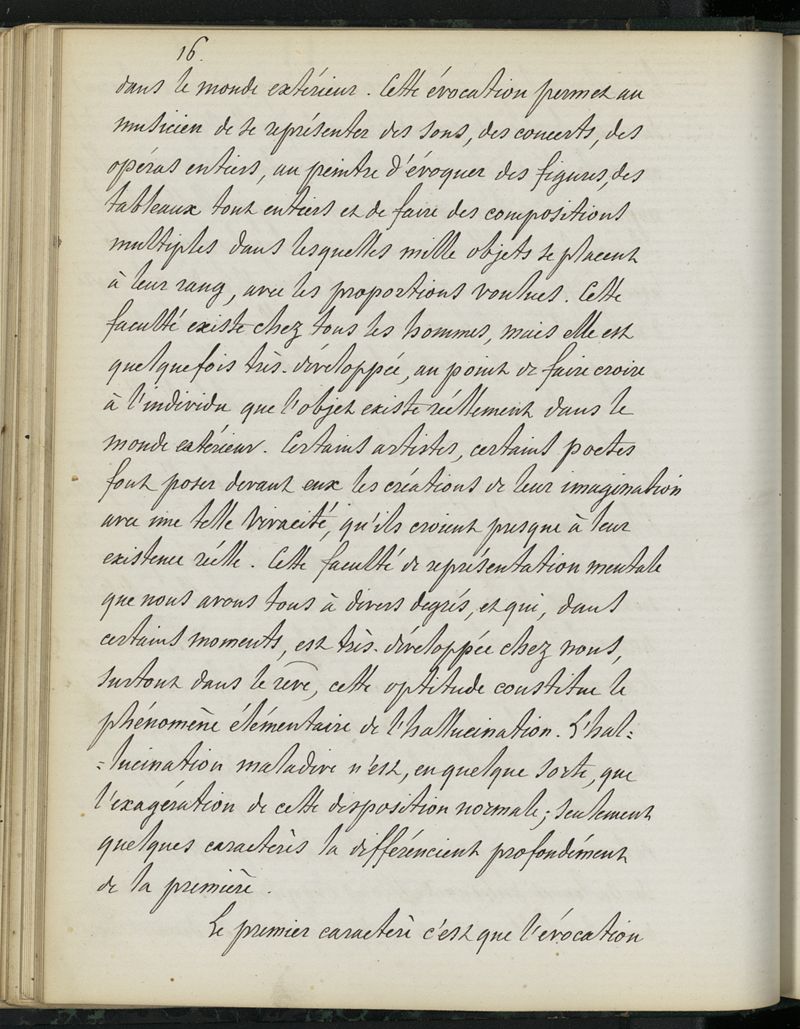 16.
dans le monde extérieur. Cette évocation permet au
musicien de se représenter des sons, des concerts, des
opéras entiers, au peintre d'évoquer des figures, des
tableaux tout entiers et de faire des compositions
multiples dans lesquelles mille objets se placent
à leur rang, avec les proportions voulues. Cette
faculté existe chez tous les hommes, mais elle est
quelquefois très-développée, au point de faire croire
à l'individu que l'objet existe réellement dans le
monde extérieur. Certains artistes, certains poetes
font poser devant eux les créations de leur imagination
avec une telle vivacité, qu'ils croient presque à leur
existence réelle. Cette faculté de représentation mentale
que nous avons tous à divers degrés, et qui, dans
certains moments, est très-développée chez nous,
surtout dans le rêve, cette optitude constitue le
phénomène élémentaire de l'hallucination. L'hal=
=lucination maladive n'est, en quelque sorte, que
l'exagération de cette disposition normale; seulement
quelques caractères la différencient profondément
de la première.
Le premier caractère c'est que l'évocation